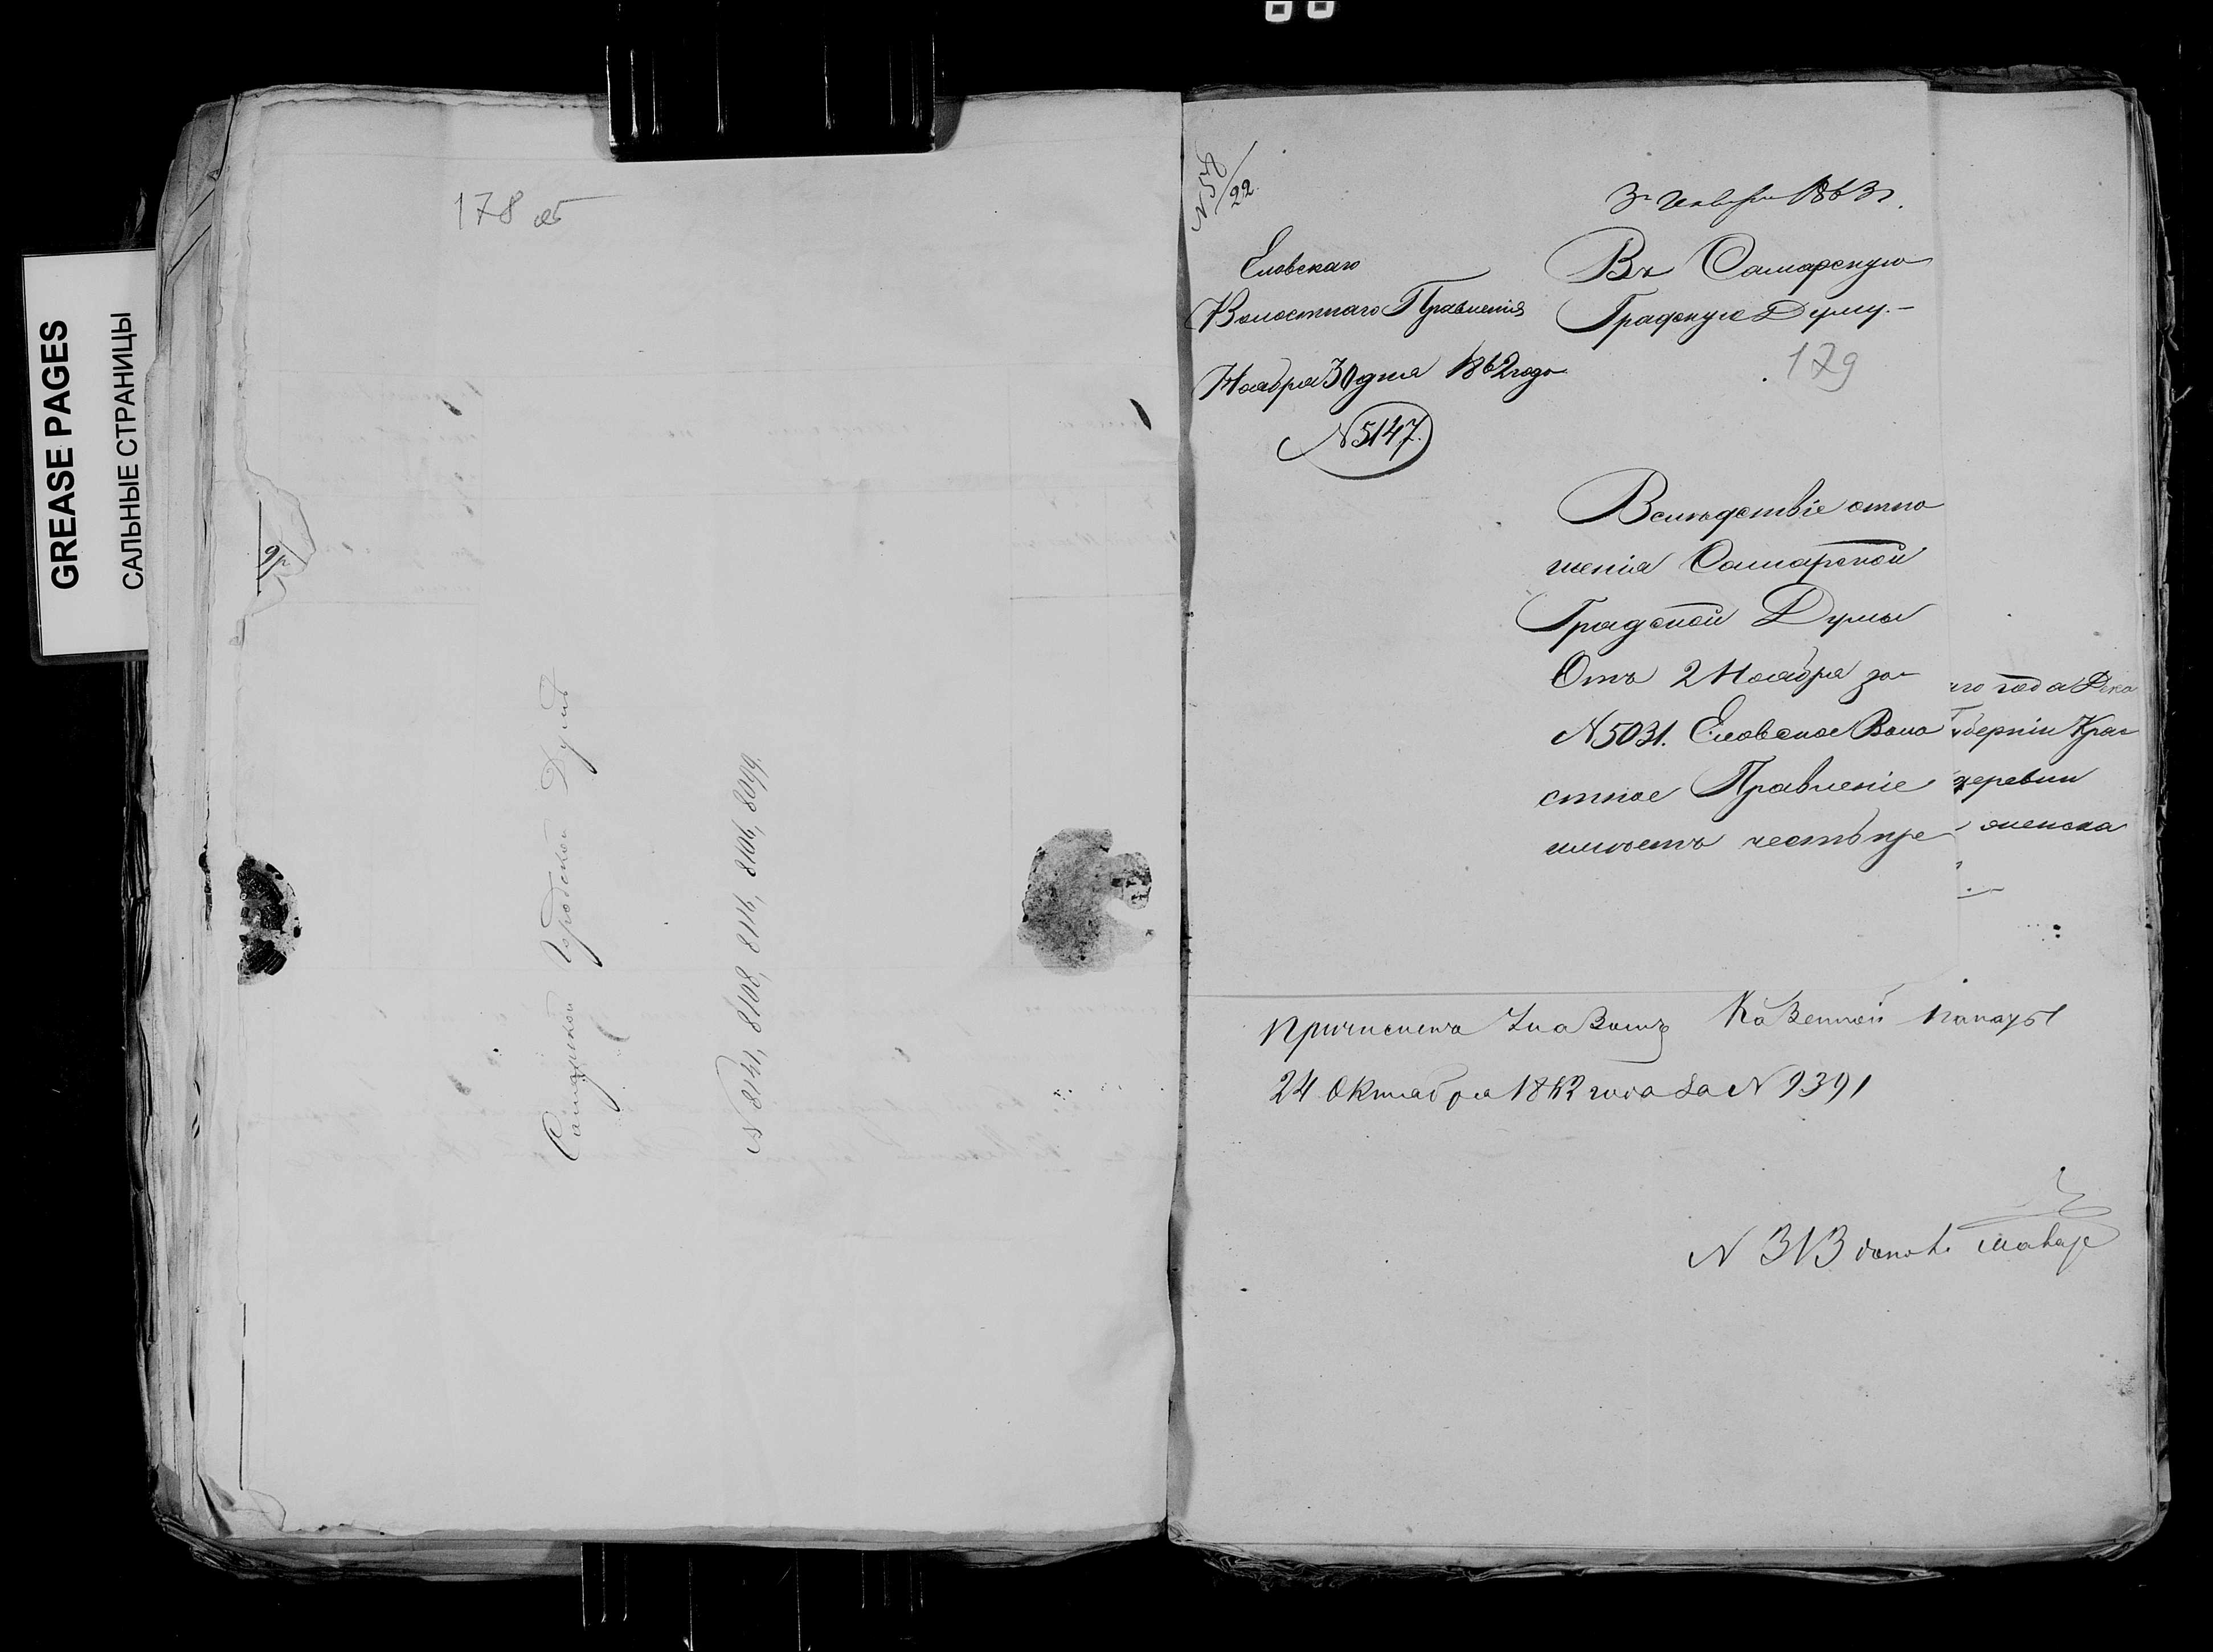 GREASE PAGES
САЛЬНЫЕ СТРАНИЦЫ
178 об
Самарской Городской Думѣ
N 8141, 8108, 8116, 8106, 8099.
N 58/22
3 Января 1863 г.
Еловскаго
Волостнаго Правленія
Ноября 30 дня 1862 года
N 5147.
Въ Самарскую
Градскую Думу.-
179
Вслѣдствіе отно
шенія Самарской
Градской Думы
Отъ 2 Ноября за
N 5031. Еловское Воло
стное Правленіе
имѣетъ честь пре
го года
губерніи Крас
деревни
Причисленъ Указомъ Казенной Палаты
24 Октября 1862 года за N 9391
N 313